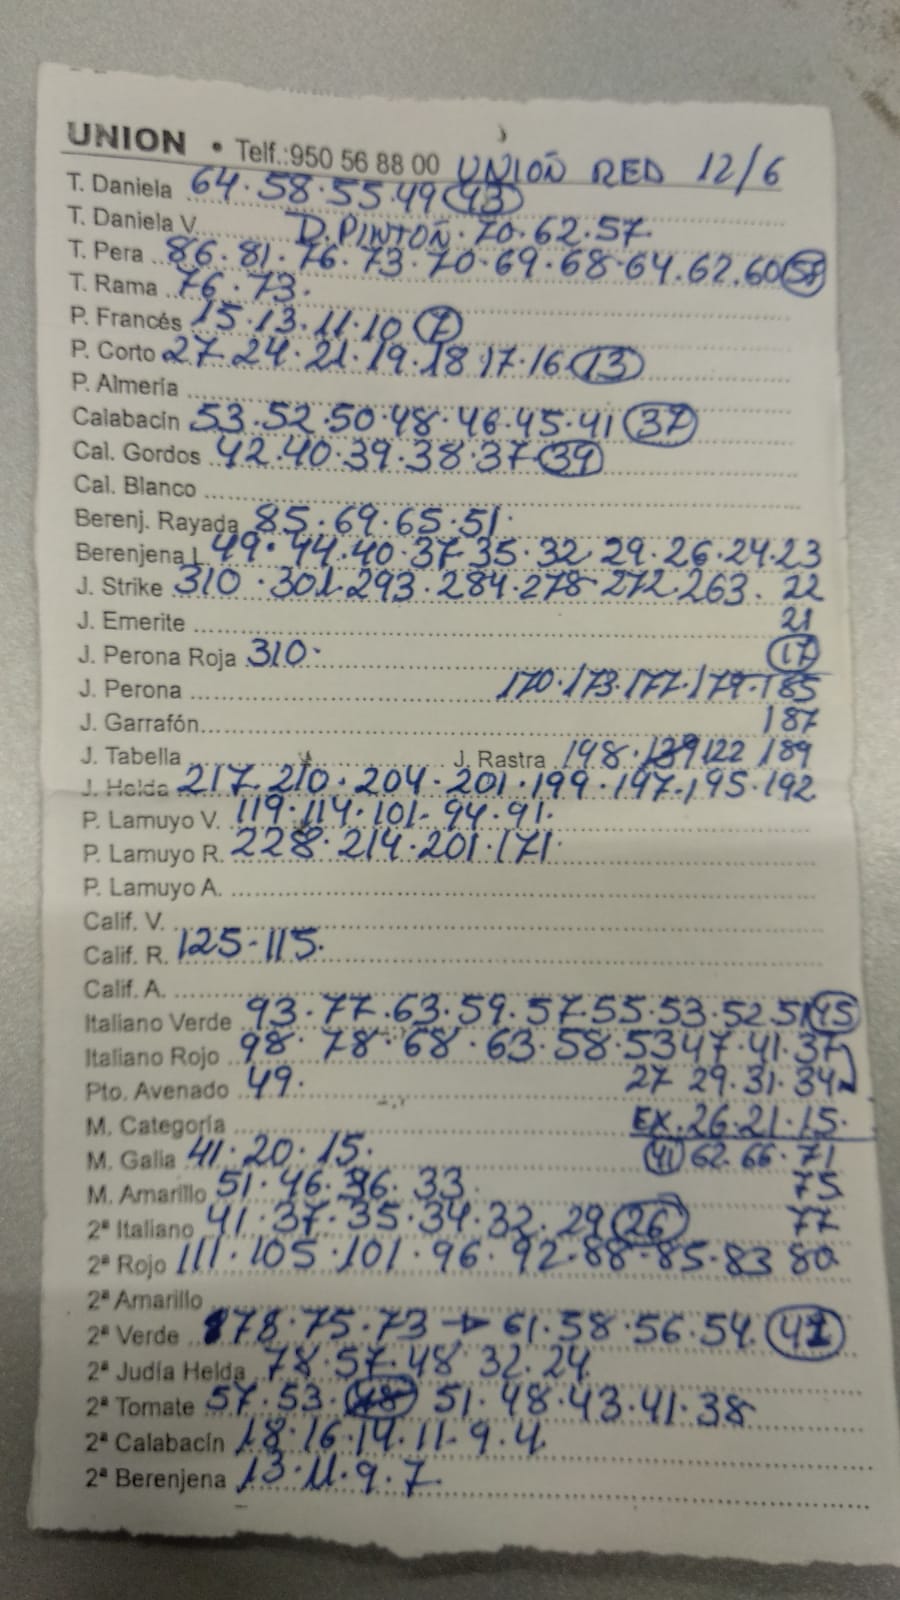 UNION • Telf.:950 56 88 00 UNIOÑ RED 12/6
T. Daniela 64·58·55·49 43
T. Daniela V. D. PINTOÑ·70·62·57·
T. Pera 86·81·76·73·70·69·68·64·62·60 58
T. Rama 76·73·
P. Francés 15·13·11·10 7
P. Corto 27·24·21·19·18·17·16 13
P. Almería
Calabacín 53·52·50·48·46·45·41 37
Cal. Gordos 42·40·39·38·37 39
Cal. Blanco
Berenj. Rayada 85·69·65·51·
Berenjena L 49·44·40·37·35·32 29·26·24·23
J. Strike 310·301·293·284·278·272·263· 22
J. Emerite 21
J. Perona Roja 310· 17
J. Perona 170·173·177·179·185
J. Garrafón 187
J. Tabella J. Rastra 198·139 122 189
J. Helda 217·210·204·201·199·197·195·192
P. Lamuyo V. 119·114·101·94·91·
P. Lamuyo R. 228·214·201·171·
P. Lamuyo A.
Calif. V.
Calif. R. 125-115·
Calif. A.
Italiano Verde 93·77·63·59·57·55·53·52·51 45
Italiano Rojo 98·78·68·63·58·53 47·41·37
Pto. Avenado 49· 27 29·31·34
M. Categoría EX·26·21·15·
M. Galia 41·20·15· 41 62·66·71
M. Amarillo 51·46·36·33· 75
2ª Italiano 41·37·35·34·32·29 26 77
2ª Rojo 111·105·101·96·92·88·85·83 80
2ª Amarillo
2ª Verde 78·75·73 → 61·58·56·54
2ª Judía Helda 78·57·48 32·24
2ª Tomate 57·53· 48 51·48·43·41·38
2ª Calabacín 18·16·14·11·9·4
2ª Berenjena 13·11·9·7